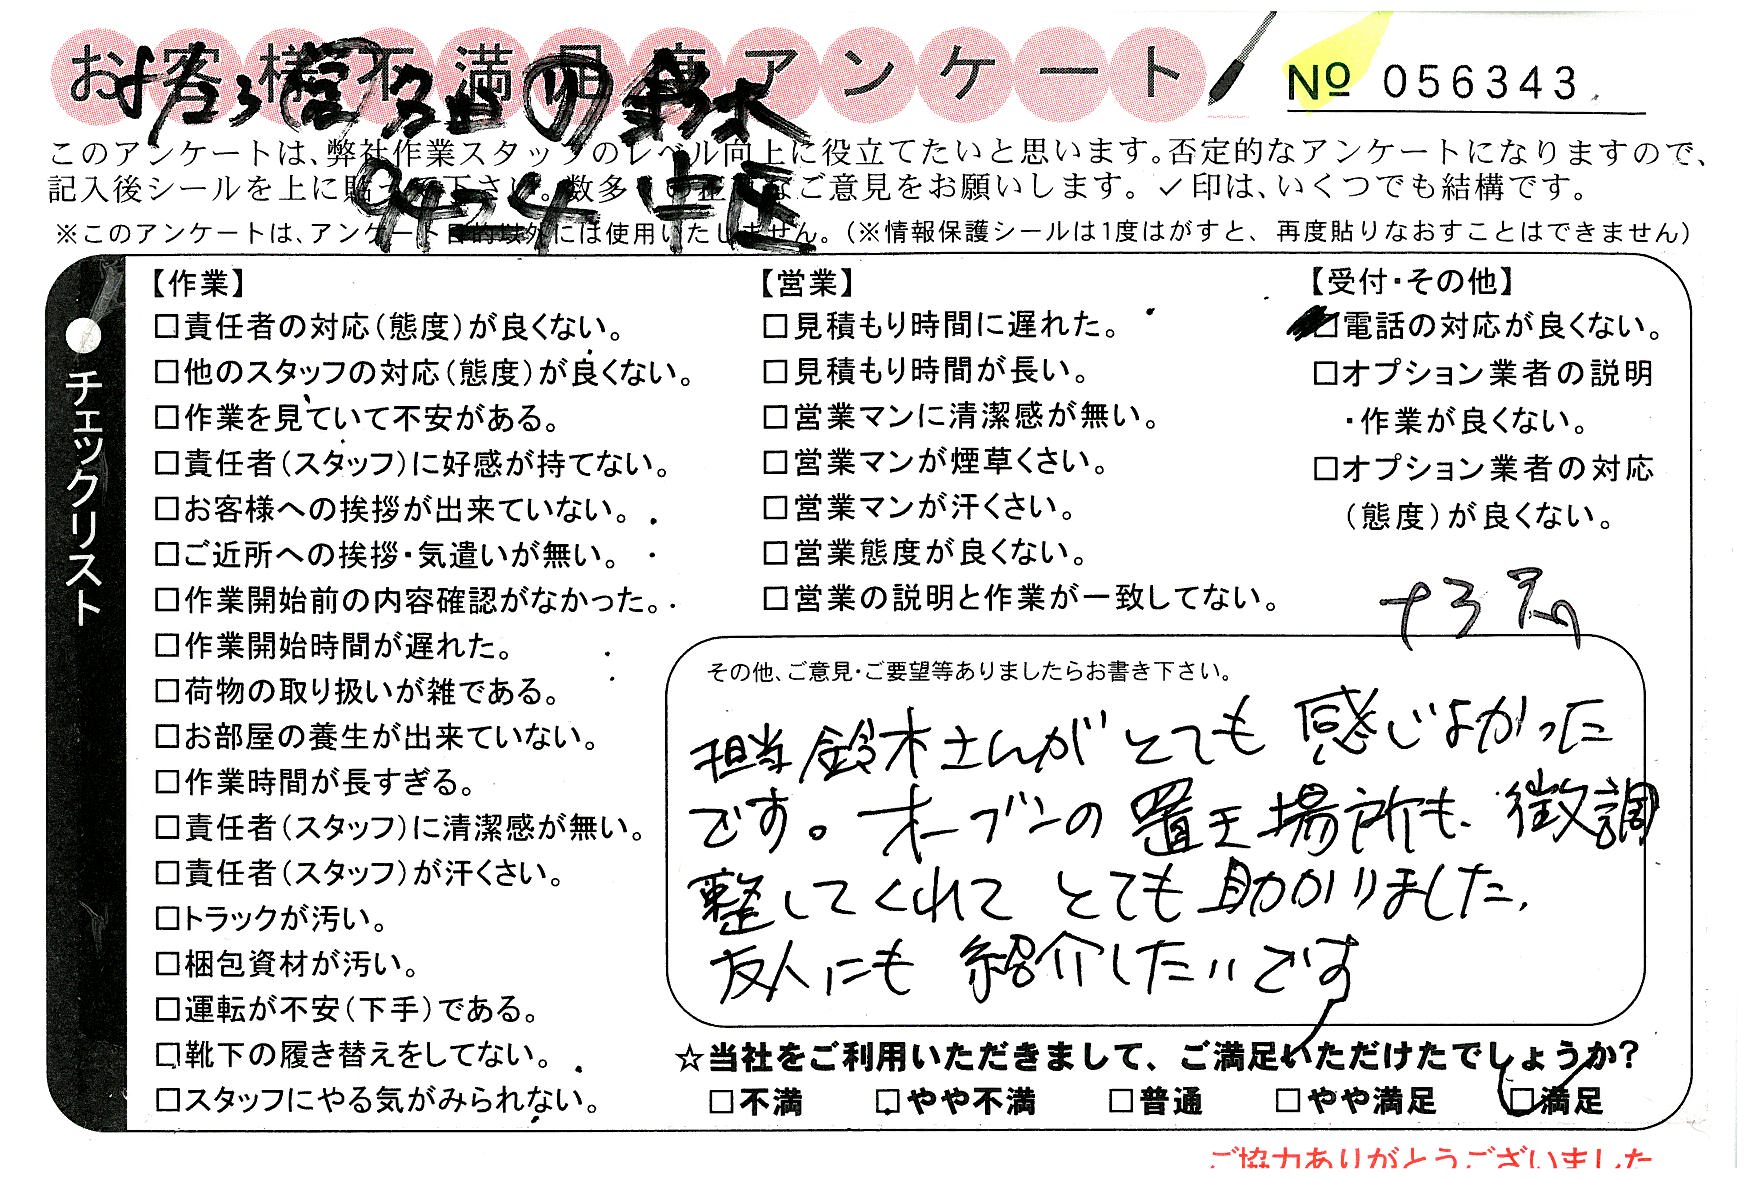 お客様不満足度アンケート
№ 056343
このアンケートは、弊社作業スタッフのレベル向上に役立てたいと思います。否定的なアンケートになりますので、
記入後シールを上に貼って下さい。数多くの正直なご意見をお願いします。✓印は、いくつでも結構です。
※このアンケートは、アンケート目的以外には使用いたしません。（※情報保護シールは1度はがすと、再度貼りなおすことはできません）
鈴木
チェックリスト
【作業】
□責任者の対応（態度）が良くない。
□他のスタッフの対応（態度）が良くない。
□作業を見ていて不安がある。
□責任者（スタッフ）に好感が持てない。
□お客様への挨拶が出来ていない。
□ご近所への挨拶・気遣いが無い。
□作業開始前の内容確認がなかった。
□作業開始時間が遅れた。
□荷物の取り扱いが雑である。
□お部屋の養生が出来ていない。
□作業時間が長すぎる。
□責任者（スタッフ）に清潔感が無い。
□責任者（スタッフ）が汗くさい。
□トラックが汚い。
□梱包資材が汚い。
□運転が不安（下手）である。
□靴下の履き替えをしてない。
□スタッフにやる気がみられない。
【営業】
□見積もり時間に遅れた。
□見積もり時間が長い。
□営業マンに清潔感が無い。
□営業マンが煙草くさい。
□営業マンが汗くさい。
□営業態度が良くない。
□営業の説明と作業が一致してない。
【受付・その他】
□電話の対応が良くない。
□オプション業者の説明
・作業が良くない。
□オプション業者の対応
（態度）が良くない。
その他、ご意見・ご要望等ありましたらお書き下さい。
担当鈴木さんがとても感じよかった
です。オーブンの置き場所も、微調
整してくれてとても助かりました。
友人にも紹介したいです
☆当社をご利用いただきまして、ご満足いただけたでしょうか？
□不満 □やや不満 □普通 □やや満足 ☑満足
ご協力ありがとうございました